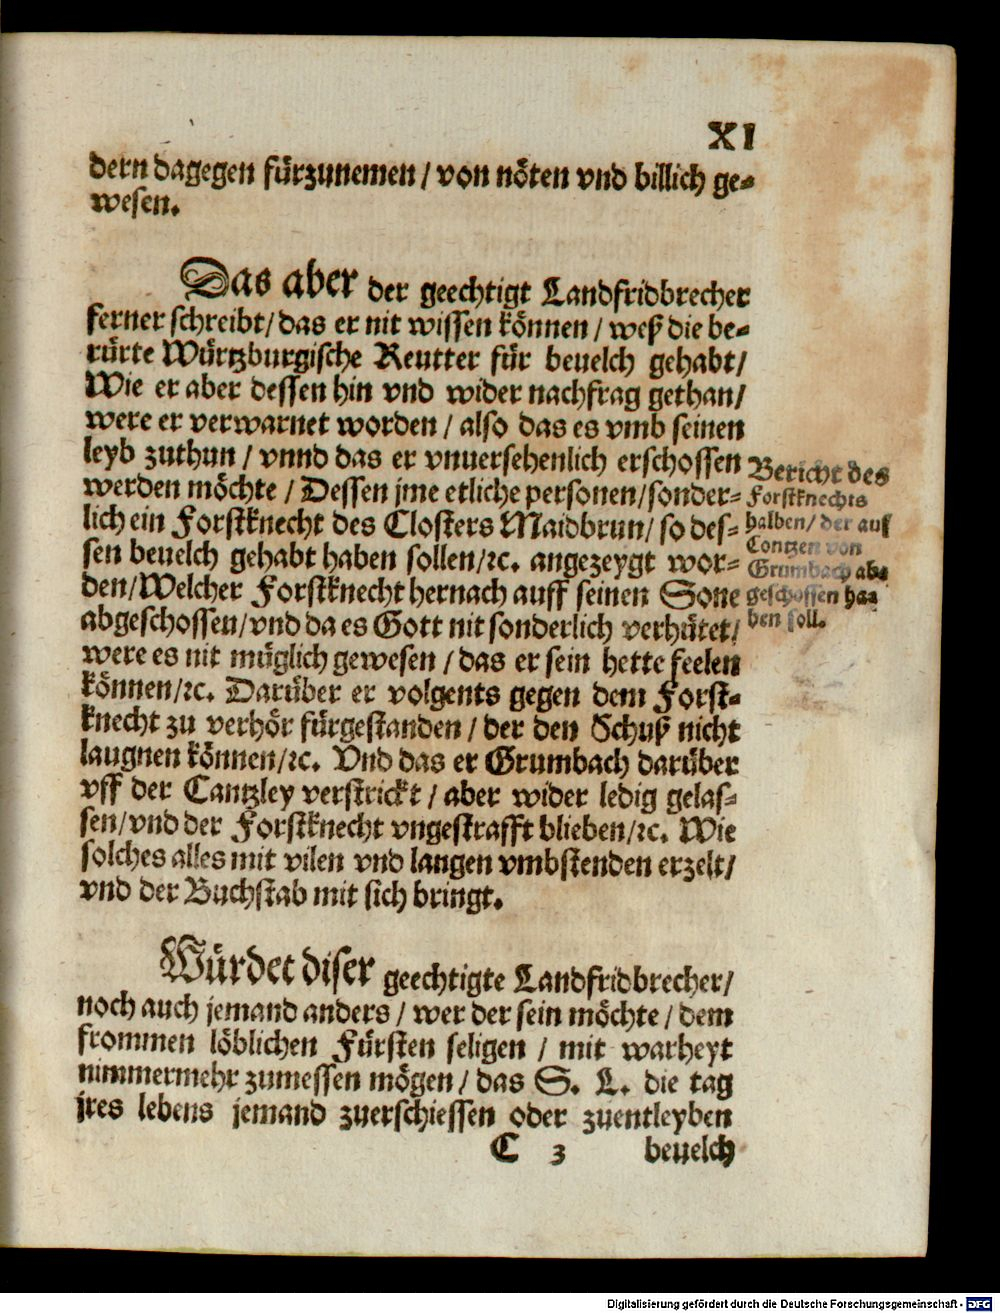 XI
dern dagegen fürzunemen / von nöten vnd billich ge-
wesen.
Das aber der geechtigt Landfridbrecher
ferner schreibt / das er nit wissen können / weß die be-
rürte Würtzburgische Reutter für beuelch gehabt /
Wie er aber dessen hin vnd wider nachfrag gethan /
were er verwarnet worden / also das es vmb seinen
leyb zuthun / vnnd das er vnuersehenlich erschossen
werden möchte / Dessen jme etliche personen / sonder-
lich ein Forstknecht des Closters Maidbrun / so des-
sen beuelch gehabt haben sollen / ꝛc. angezeygt wor-
den / Welcher Forstknecht hernach auff seinen Sone
abgeschossen / vnd da es Gott nit sonderlich verhütet /
were es nit müglich gewesen / das er sein hette feelen
können / ꝛc. Darüber er volgents gegen dem Forst-
knecht zu verhör fürgestanden / der den Schuß nicht
laugnen können / ꝛc. Vnd das er Grumbach darüber
vff der Cantzley verstrickt / aber wider ledig gelas-
sen / vnd der Forstknecht vngestrafft blieben / ꝛc. Wie
solches alles mit vilen vnd langen vmbstenden erzelt /
vnd der Buchstab mit sich bringt.
Bericht des
Forstknechts
halben / der auf
Contzen von
Grumbach abe
geschossen haa
ben soll.
Würdet diser geechtigte Landfridbrecher /
noch auch jemand anders / wer der sein möchte / dem
frommen löblichen Fürsten seligen / mit warheyt
nimmermehr zumessen mögen / das S. L. die tag
jres lebens jemand zuerschiessen oder zuentleyben
C 3 beuelch
Digitalisierung gefördert durch die Deutsche Forschungsgemeinschaft - DFG